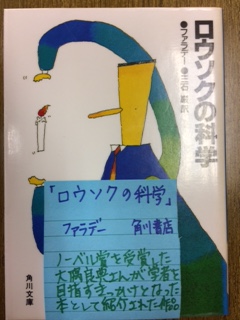 ロウソクの科学
●ファラデー●三石 巌=訳
「ロウソクの科学」
ファラデー 角川書店
ノーベル賞を受賞した
大隅良典さんが学者を
目指すきっかけとなった
本として紹介された作品
角川文庫